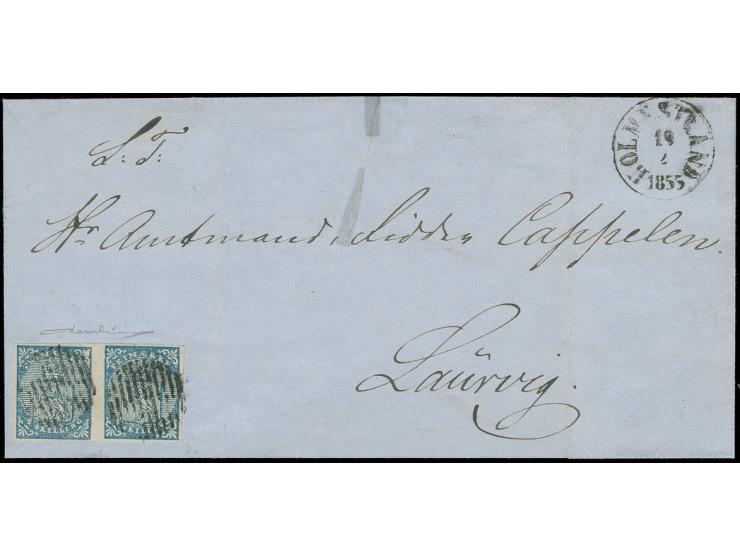 HOLMESTRAND
19
2
1855
S: T:
Hr Amtmand, Ridder Cappelen.
Laürvig.